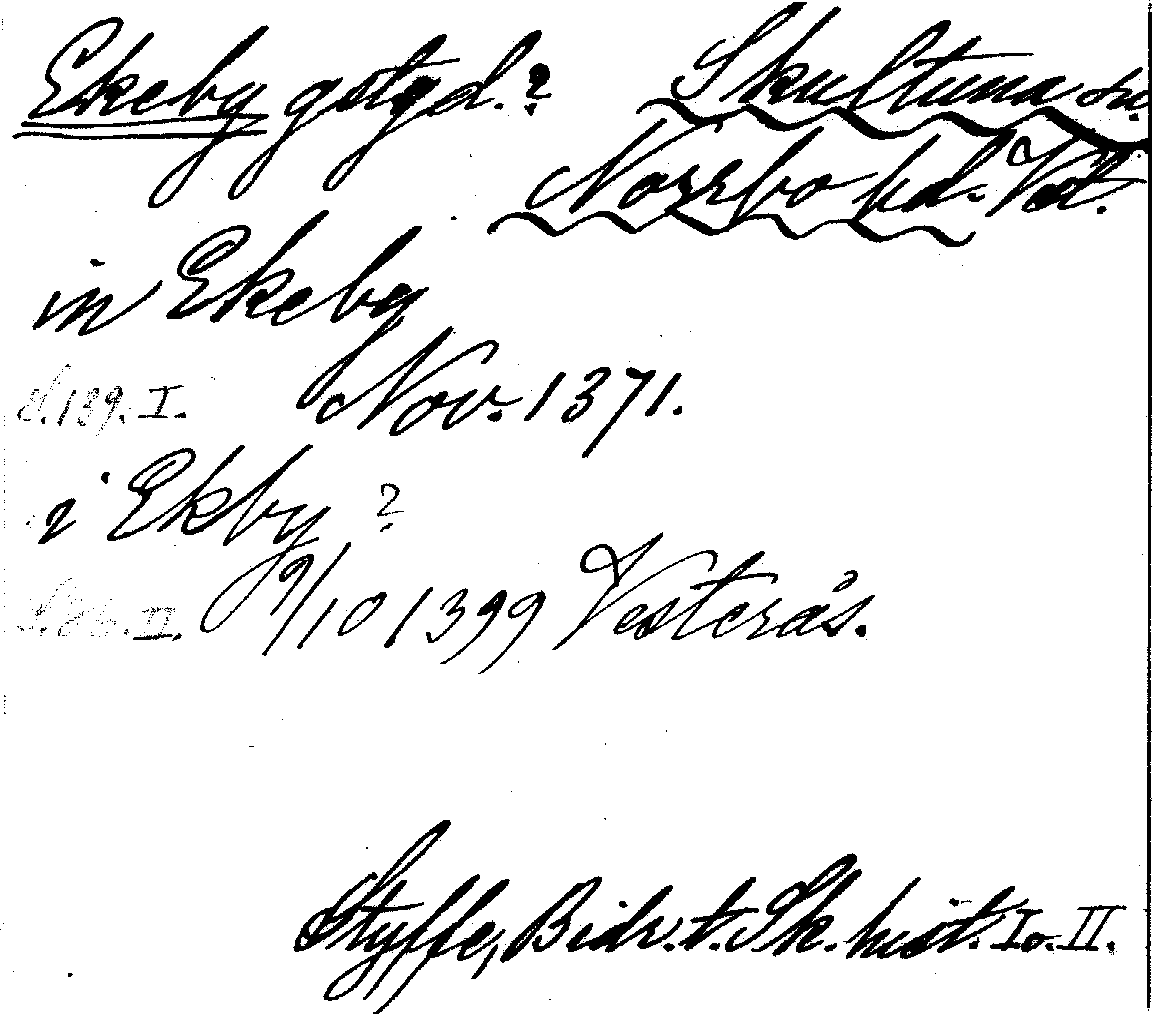 Ekeby gästgd.? Skultuna sn.
Norrbo hd. Vstl.
in Ekeby
s. 139. I. Nov. 1371.
i Ekby ?
II. 9/10 1399 Vesterås.
Styffe, Bidr. t. Sk. hist. I o. II.